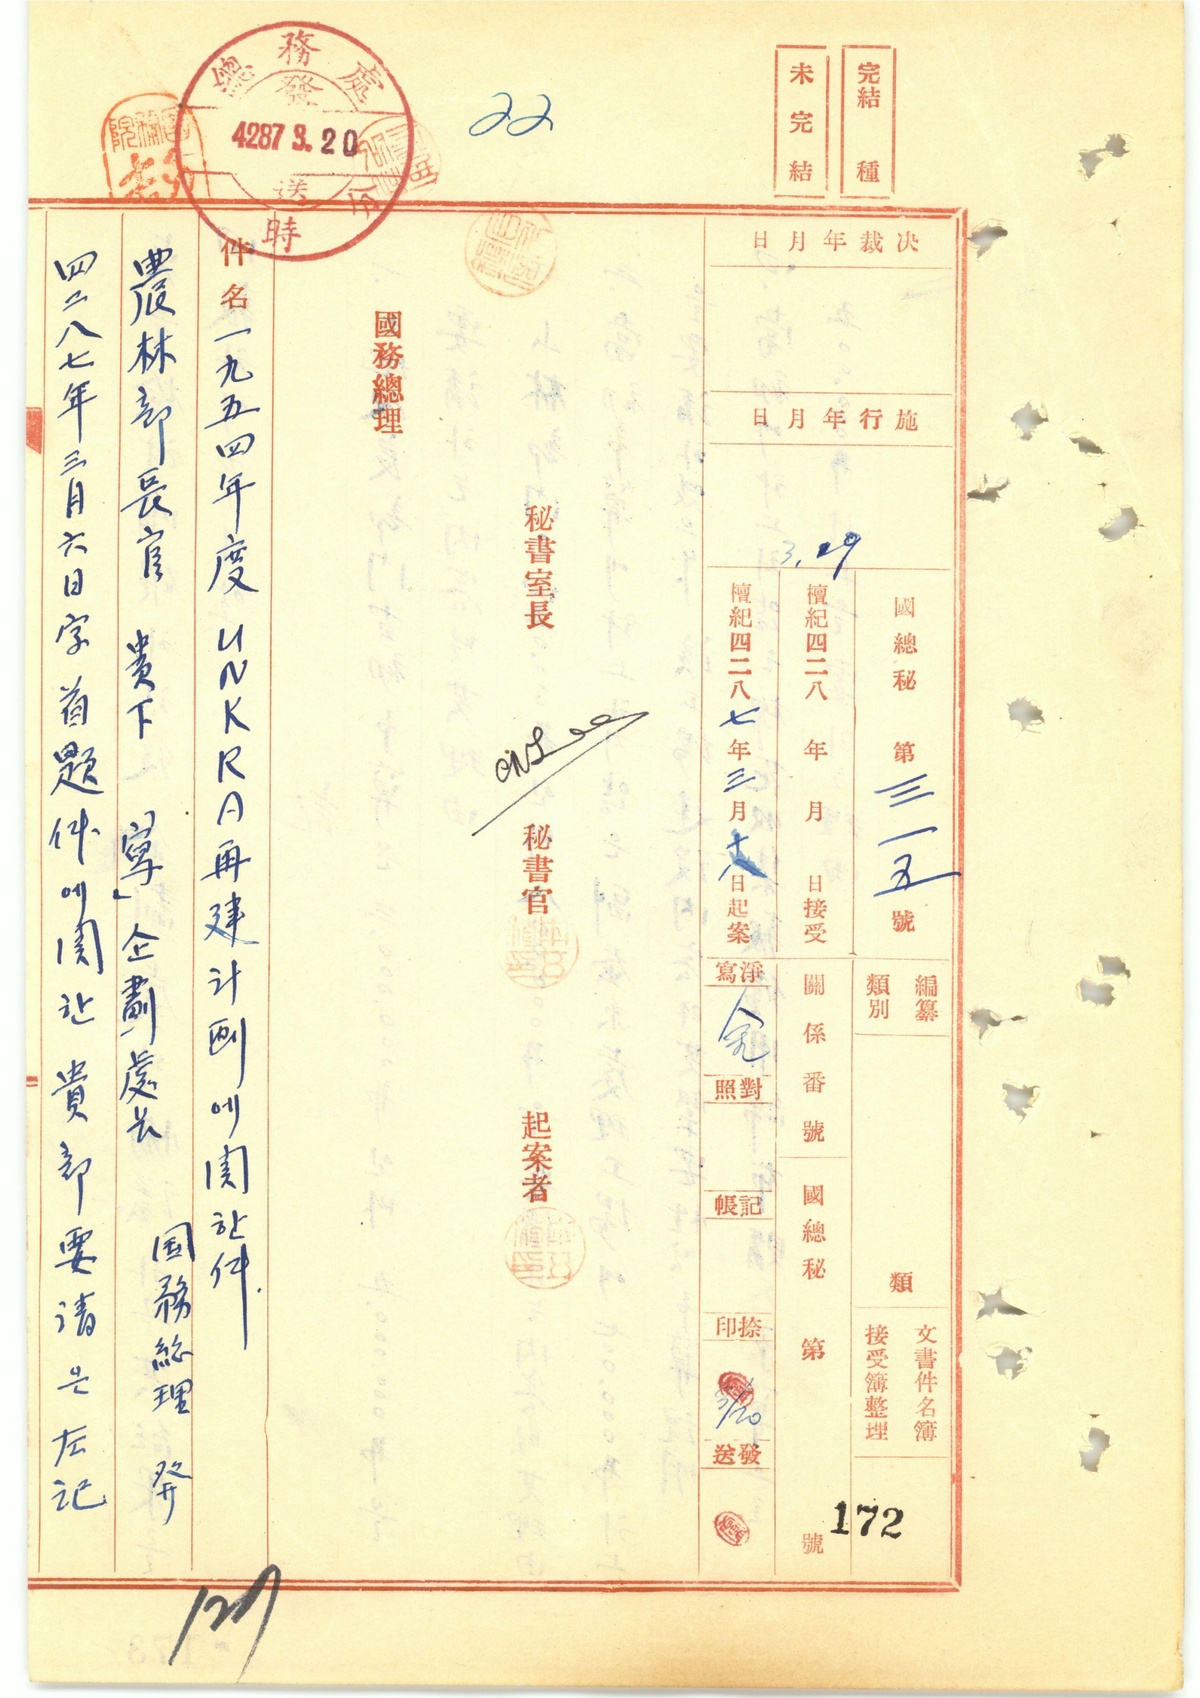 完結 種
未完結
22
總務處
發
4287 3. 20
送
時
決裁年月日
施行年月日
3, 19
國總秘 第三一五號
檀紀四二八 年 月 日接受
檀紀四二八七年三月十八日起案
編纂類別
類
文書件名簿
接受簿整理
關係番號
國總秘 第 號
淨寫
對照
記帳
捺印
3/20
發送
172
秘書室長
秘書官
起案者
國務總理
件名 一九五四年度 UNKRA再建計劃에関한件.
農林部長官 貴下 「寫」企劃處長
国務総理 発
四二八七年三月六日字首題件에関한貴部要請은左記